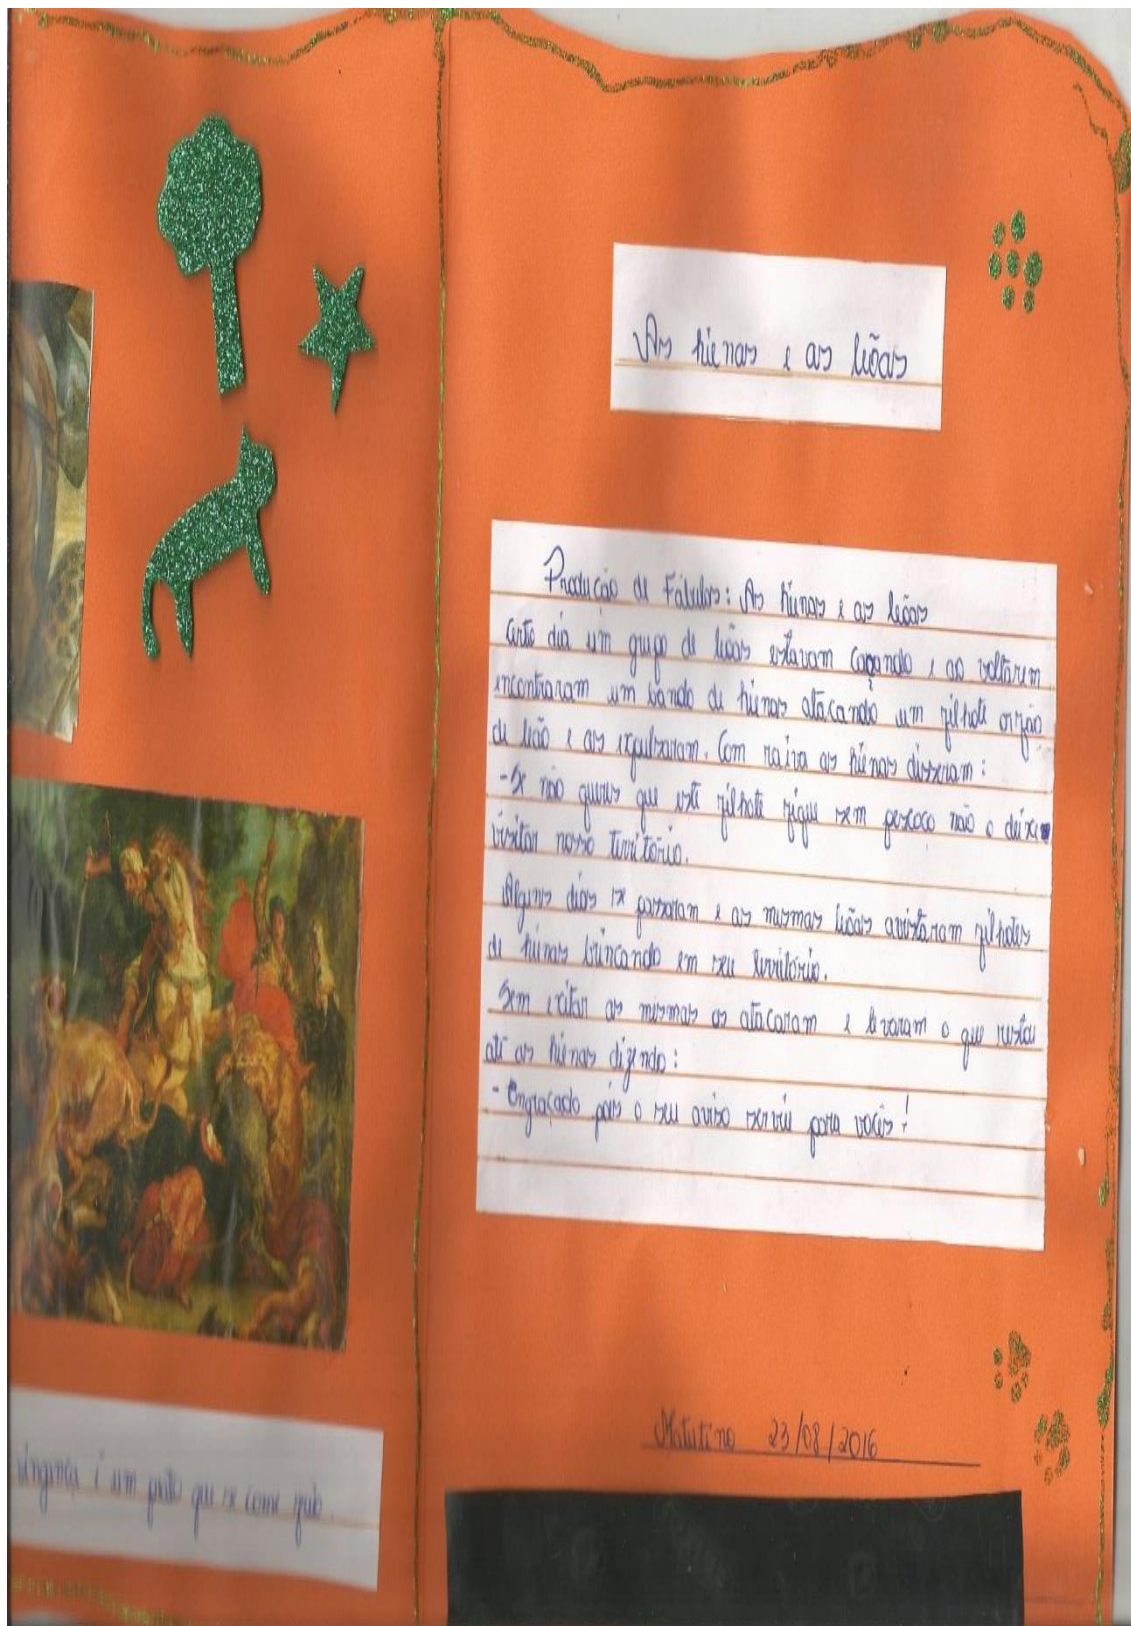 As hienas e as leõas
Produção de Fábulas: As hienas e as leõas
Certo dia um grupo de leõas estavam caçando e ao voltarem
encontraram um bando de hienas atacando um filhote orfão
de leão e as expulsaram. Com raiva as hienas disseram:
- Se não queres que este filhote fique sem pescoço não o deixe
visitar nosso território.
Alguns dias se passaram e as mesmas leõas avistaram filhotes
de hienas brincando em seu território.
Sem exitar as mesmas os atacaram e levaram o que restou
até as hienas dizendo:
- Engraçado pois o seu aviso serviu para vocês!
Matutino 23/08/2016
vingança é um prato que se come frio.